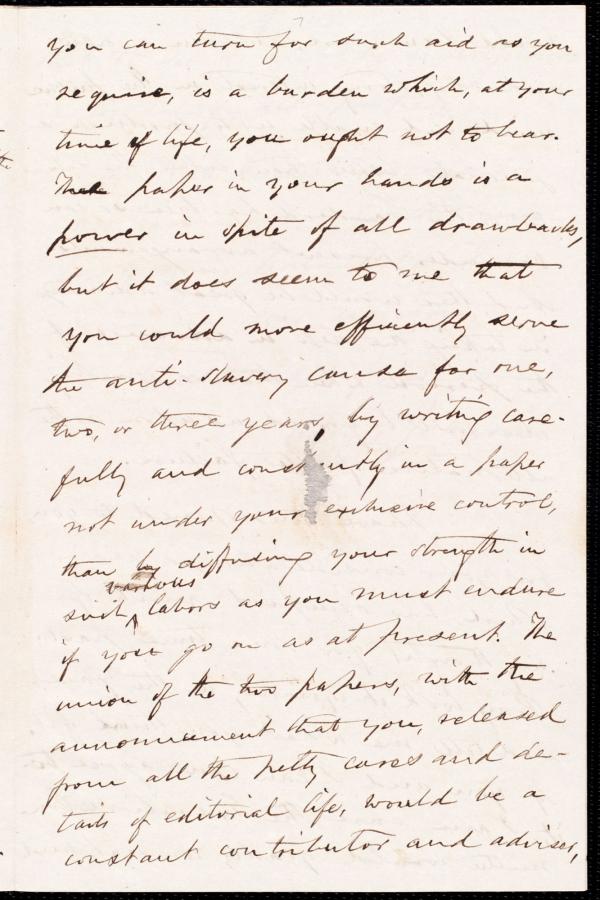 you can turn for such aid as you
require, is a burden which, at your
time of life, you ought not to bear.
The paper in your hands is a
power in spite of all drawbacks,
but it does seem to me that
you could more efficiently serve
the anti-slavery cause for one,
two, or three years, by writing care-
fully and constantly in a paper
not under your exclusive control,
than by diffusing your strength in
various
such labors as you must endure
if you go on as at present. The
union of the two papers, with the
announcement that you, released
from all the petty cares and de-
tails of editorial life, would be a
constant contributor and adviser,